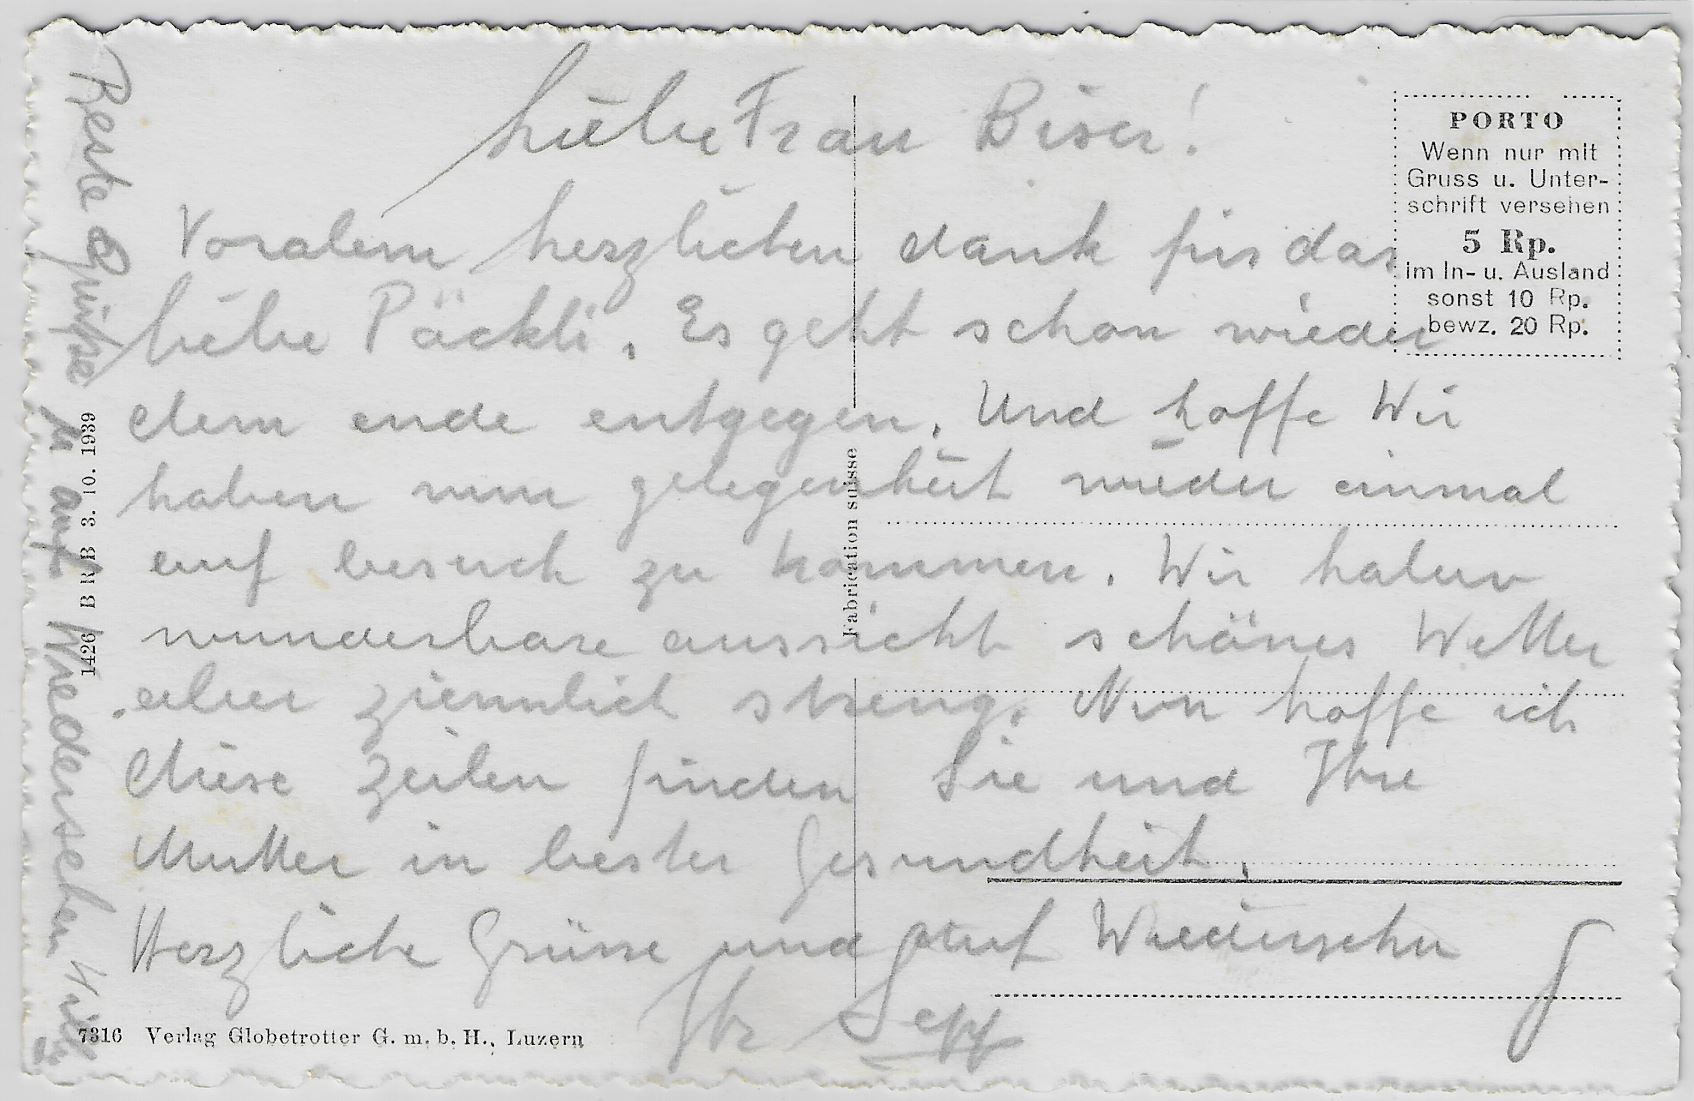 Liebe Frau Biser!
Voralem herzlichen dank für das
liebe Päckli. Es geht schon wieder
dem ende entgegen. Und hoffe Wir
haben nun gelegenheit wieder einmal
auf besuch zu kommen. Wir haben
wunderbare aussicht schönes Wetter
aber ziemmlich streng. Nun hoffe ich
diese Zeilen finden Sie und Ihre
Mutter in bester Gesundheit.
Herzliche Grüsse und auf Wiedersehn
Ihr Sepp
Beste Grüsse
auf Wiedersehen
PORTO
Wenn nur mit
Gruss u. Unter-
schrift versehen
5 Rp.
im In- u. Ausland
sonst 10 Rp.
bewz. 20 Rp.
Fabrication suisse
1426 B R B 3. 10. 1939
7316 Verlag Globetrotter G. m. b. H., Luzern